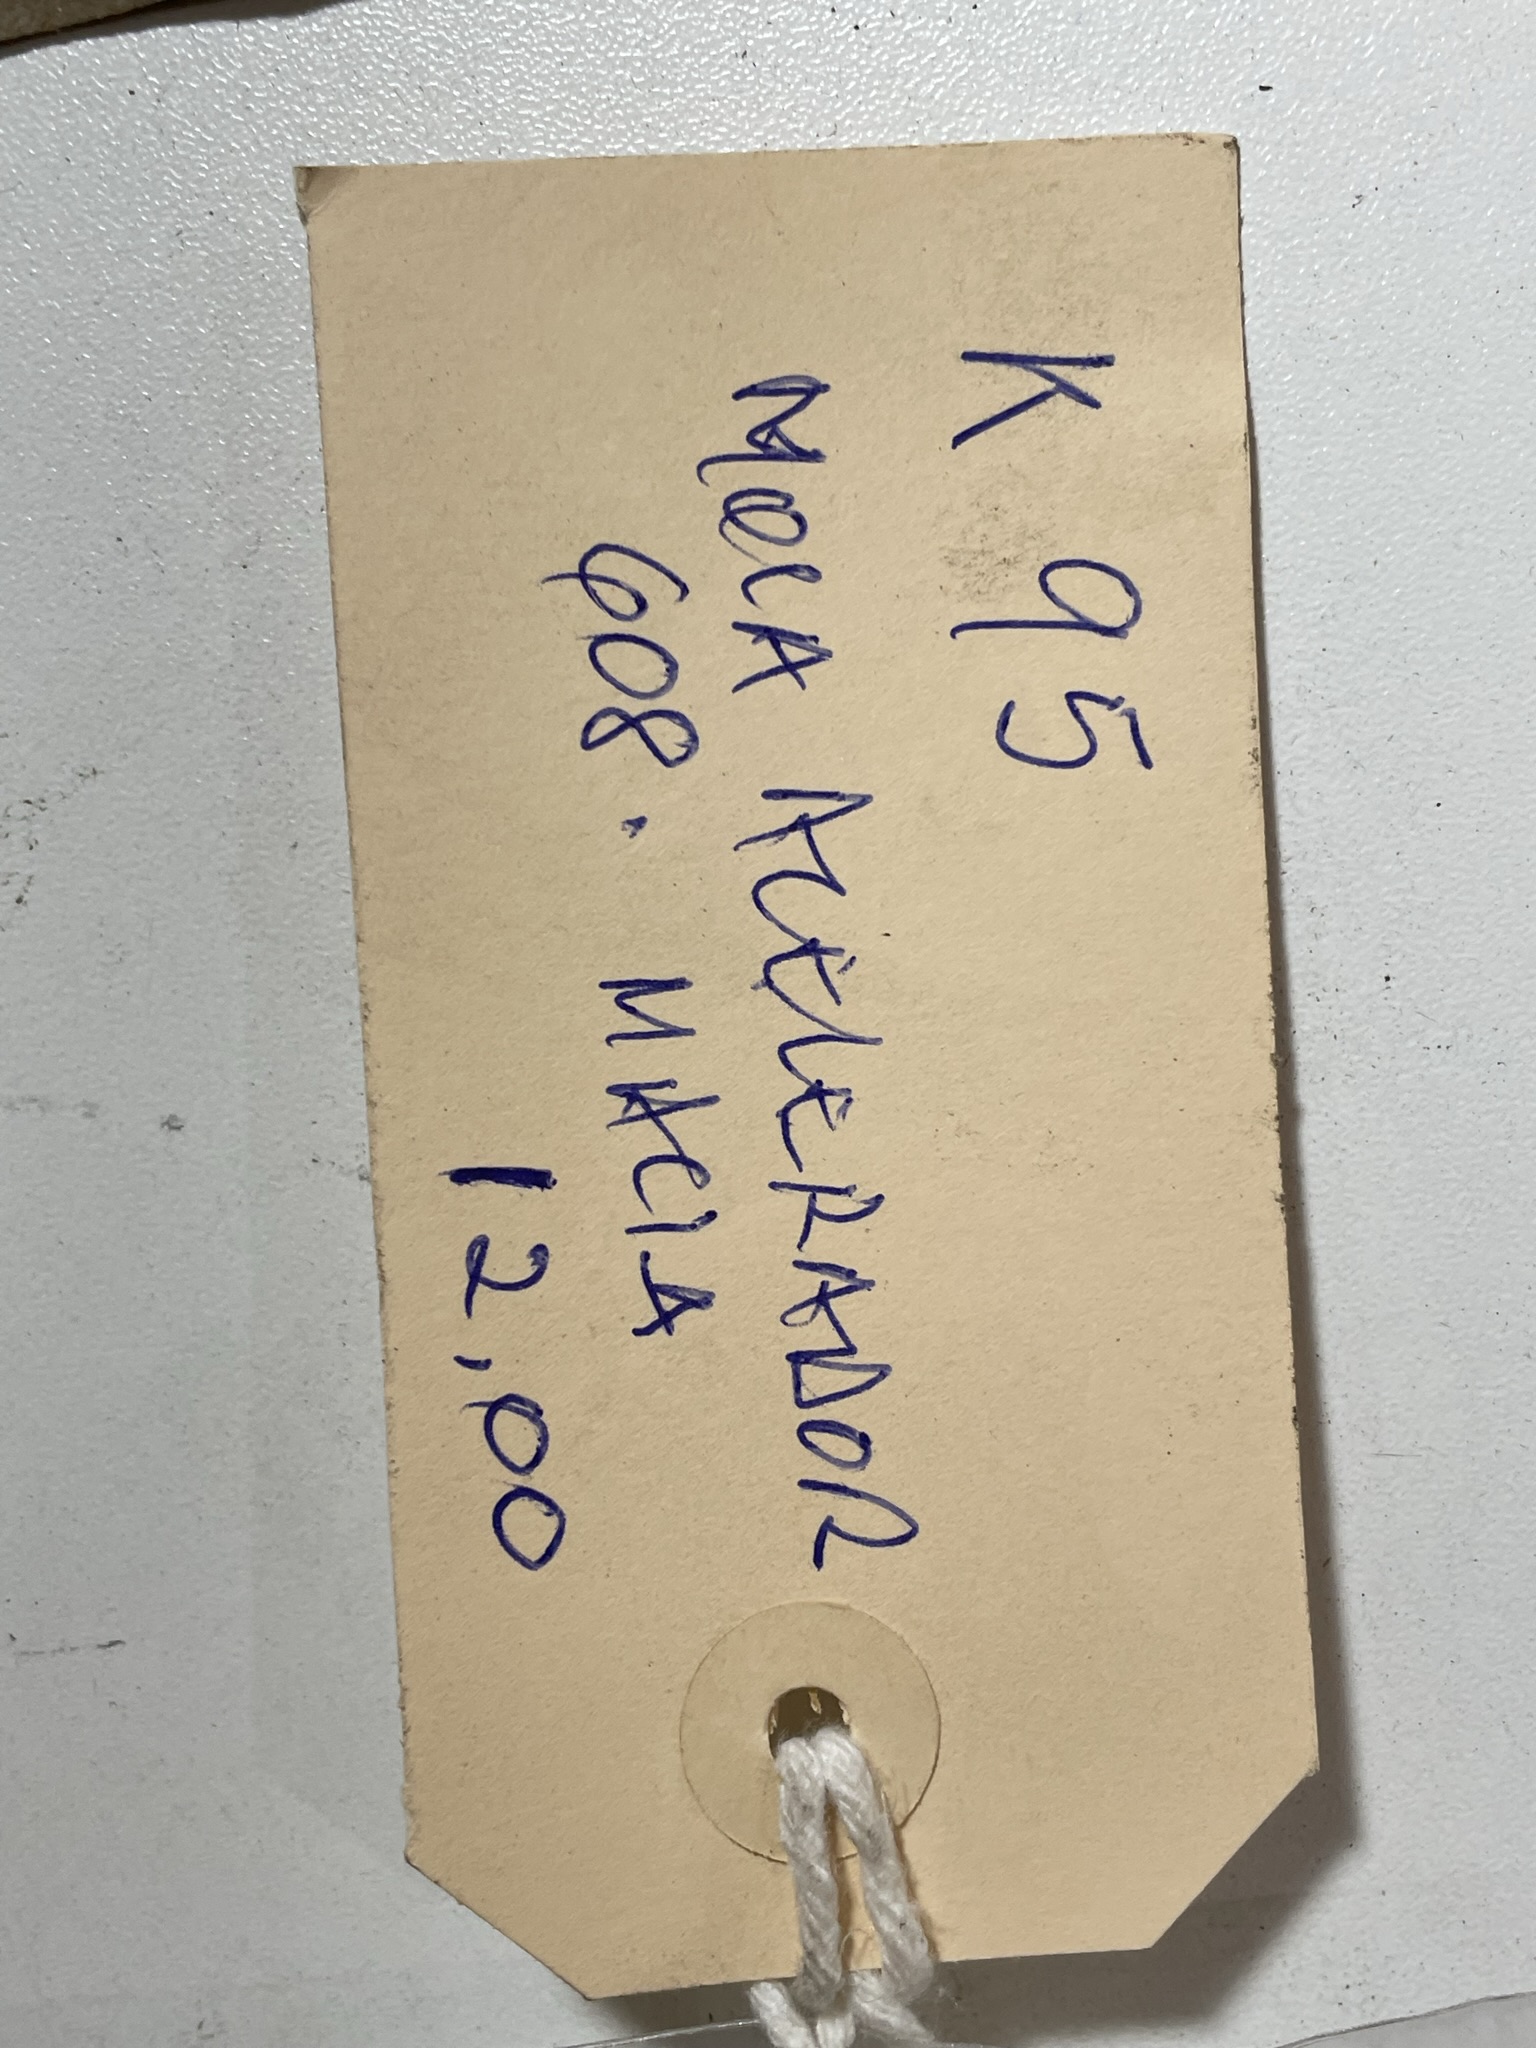 K 95
MOLA ACELERADOR
608. MACIA
12,00